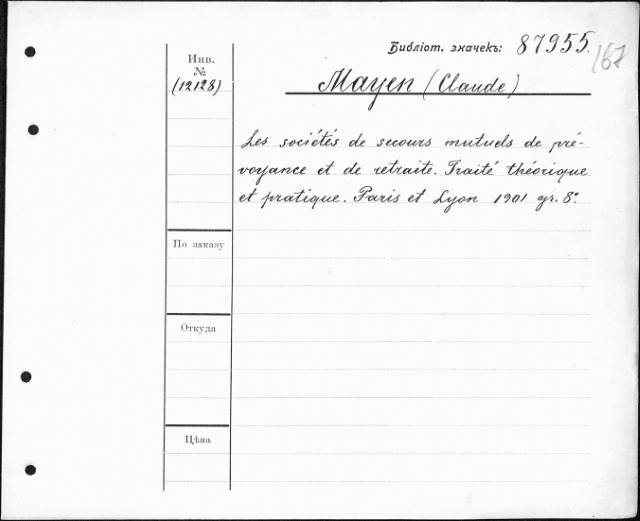 Библіот. значекъ: 87955.
167
Инв.
№
(12128)
Mayen (Claude)
Les sociétés de secours mutuels de pré-
voyance et de retraite. Traité théorique
et pratique. Paris et Lyon 1901 gr. 8°.
По заказу
Откуда
Цѣна